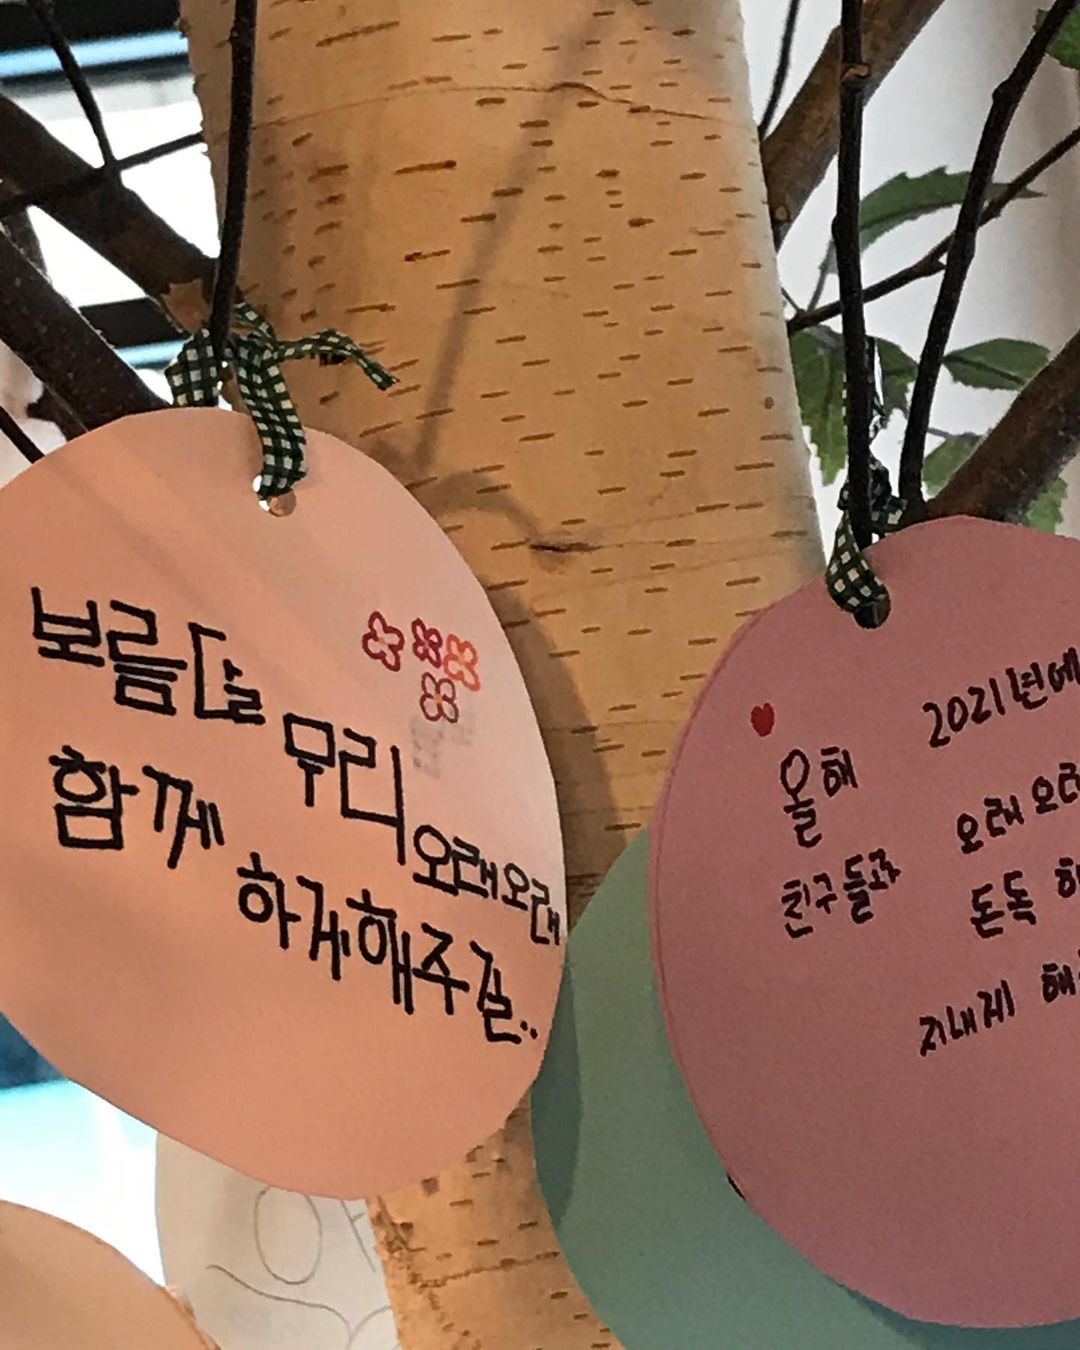 보름달 우리
함께 오래오래
하게해주길..
2021년에
올해 오래오래
친구들과 돈독
지내게